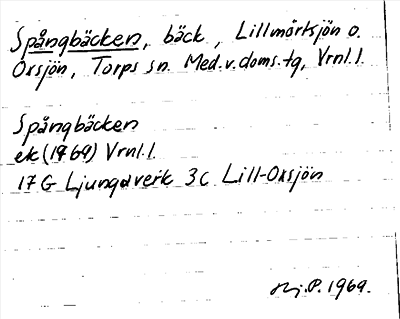 Spångbäcken, bäck, Lillmörtsjön o.
Oxsjön, Torps sn. Med.v.doms.tg, Vrnl.l.
Spångbäcken
ek (1969) Vrnl.l.
17 G Ljungaverk 3c Lill-Oxsjön
P. 1969.